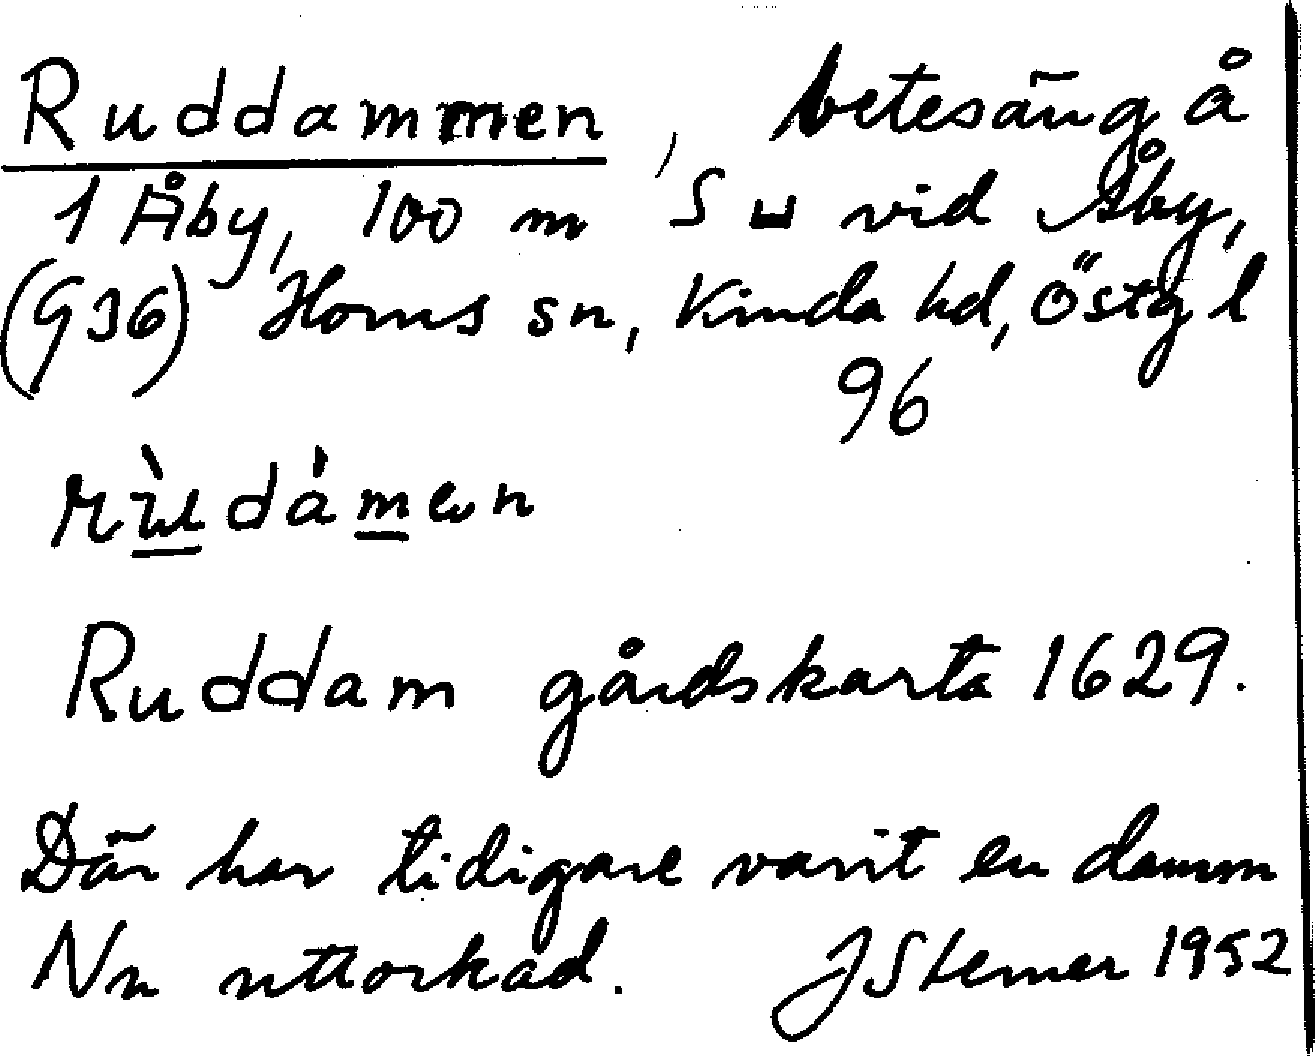 Ruddammen, betesäng å
1 Åby, 100 m S ⊔ vid Åby,
(G36) Horns sn, Kinda hd, Östg l
96
Ruddam gårdskarta 1629.
Där har tidigare varit en damm
Nu uttorkad. J Sterner 1952